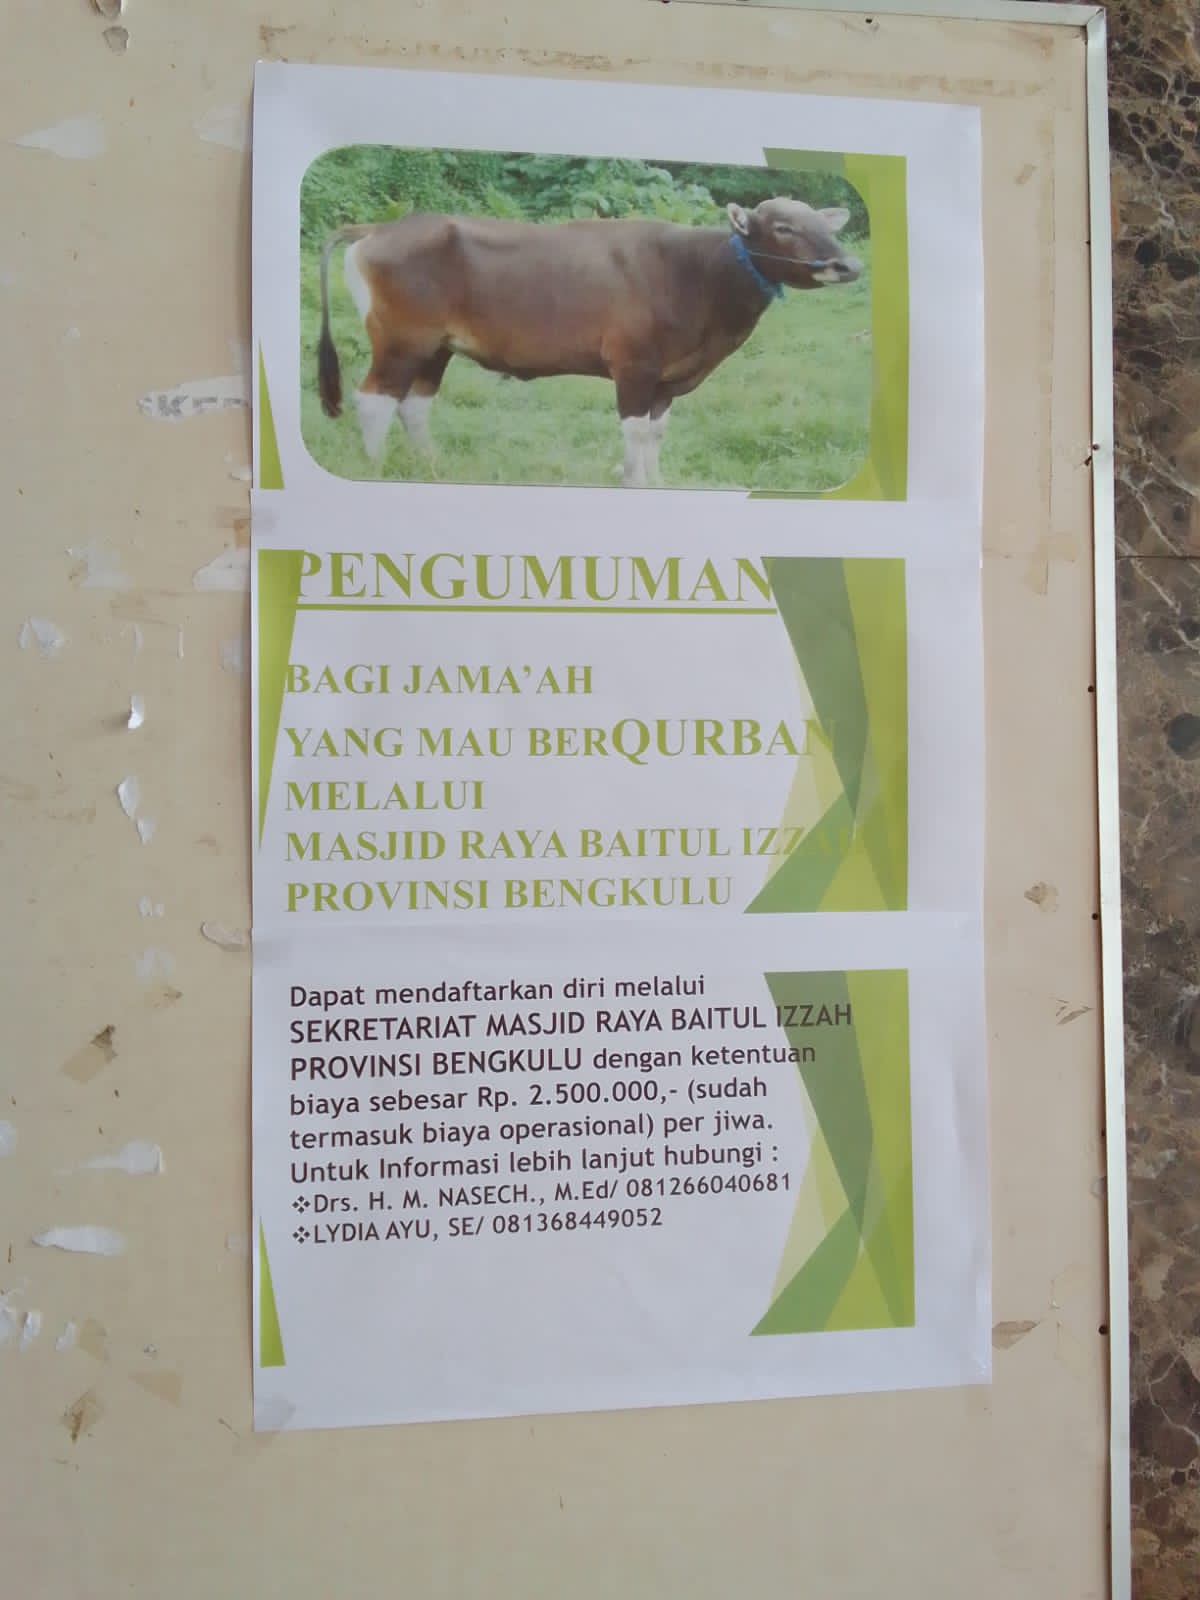 PENGUMUMAN
BAGI JAMA'AH
YANG MAU BERQURBAN
MELALUI
MASJID RAYA BAITUL IZZAH
PROVINSI BENGKULU
Dapat mendaftarkan diri melalui
SEKRETARIAT MASJID RAYA BAITUL IZZAH
PROVINSI BENGKULU dengan ketentuan
biaya sebesar Rp. 2.500.000,- (sudah
termasuk biaya operasional) per jiwa.
Untuk Informasi lebih lanjut hubungi :
❖Drs. H. M. NASECH., M.Ed/ 081266040681
❖LYDIA AYU, SE/ 081368449052